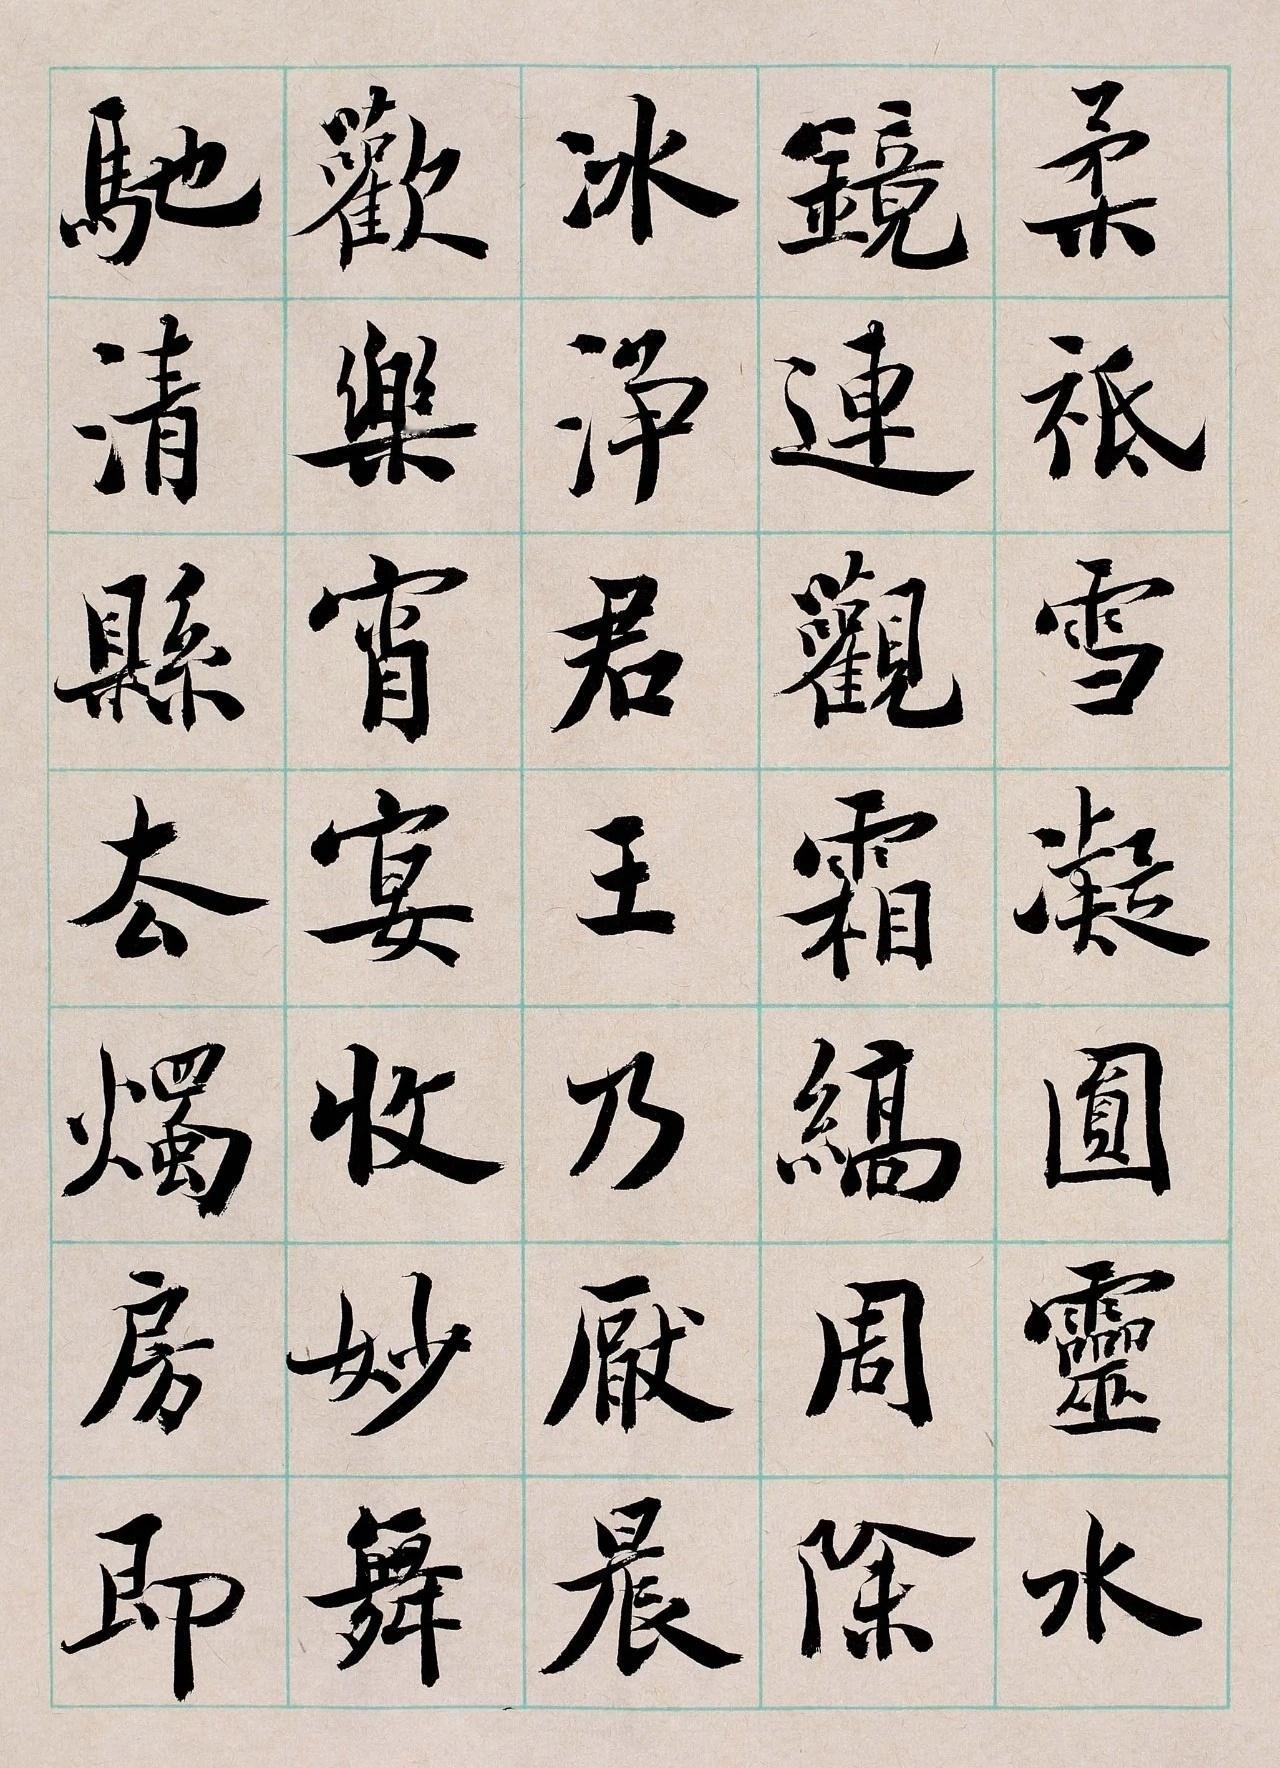 柔祗雪凝圓靈水
鏡連觀霜縞周除
冰浄君王乃厭晨
歡樂宵宴收妙舞
馳清縣去燭房即